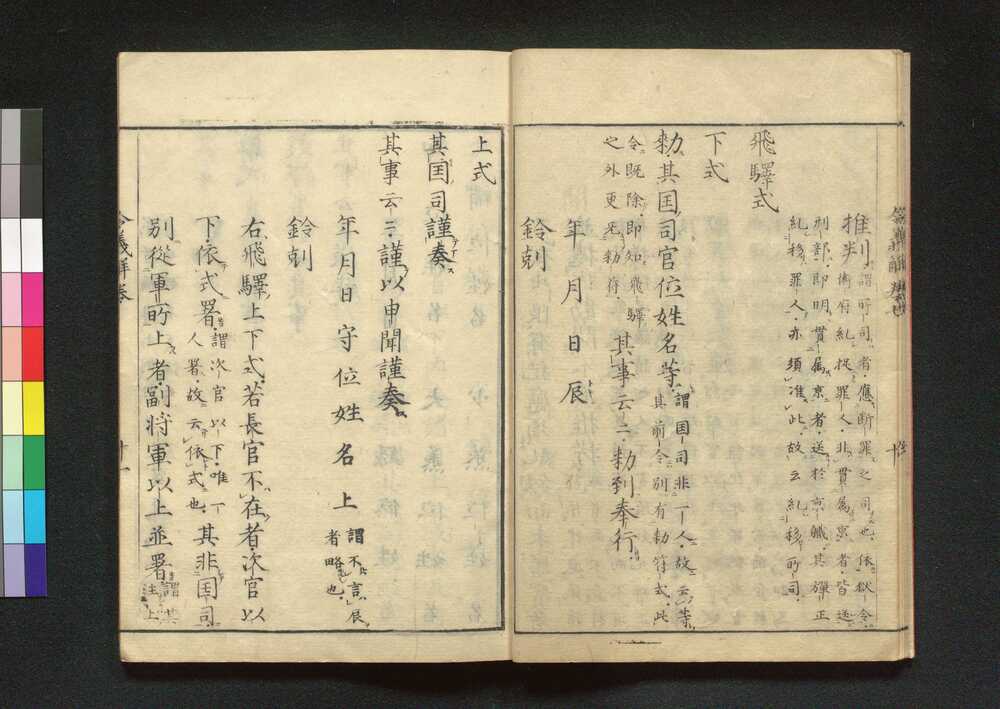 推判謂所司者應断罪之司也依獄令
衛府糺捉罪人非貫属京者皆送
刑部即明貫属京者送於京職其弾正
糺移罪人亦須准此故云糺移所司
飛驛式
下式
勅其国司官位姓名等謂国司非一人故云等
其前令別有勅符式此
令既除即知飛驛
之外更无勅符其事云云勅到奉行
年月日辰
鈴剋
上式
其国司謹奏
其事云云謹以申聞謹奏
年月日守位姓名上謂不言辰
者略也
鈴剋
右飛驛上下式若長官不在者次官以
下依式署謂次官以下唯一
人署故云依式也其非国司
別從軍所上者副将軍以上並署謂其
注上
令義解巻
十一